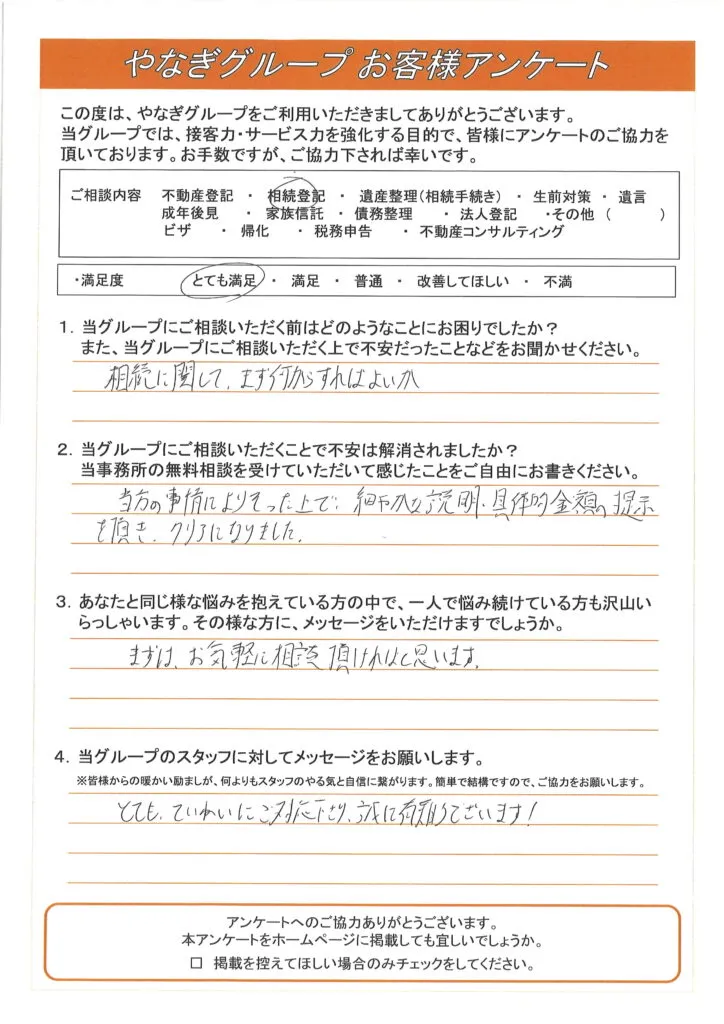 やなぎグループ お客様アンケート
この度は、やなぎグループをご利用いただきましてありがとうございます。
当グループでは、接客力・サービス力を強化する目的で、皆様にアンケートのご協力を
頂いております。お手数ですが、ご協力下されば幸いです。
ご相談内容 不動産登記 ・ 相続登記 ・ 遺産整理(相続手続き) ・ 生前対策 ・ 遺言
成年後見 ・ 家族信託 ・ 債務整理 ・ 法人登記 ・その他 ( )
ビザ ・ 帰化 ・ 税務申告 ・ 不動産コンサルティング
・満足度 とても満足 ・ 満足 ・ 普通 ・ 改善してほしい ・ 不満
1. 当グループにご相談いただく前はどのようなことにお困りでしたか?
また、当グループにご相談いただく上で不安だったことなどをお聞かせください。
相続に関して、まず何からすればよいか
2. 当グループにご相談いただくことで不安は解消されましたか?
当事務所の無料相談を受けていただいて感じたことをご自由にお書きください。
当方の事情によりそった上で、細やかな説明・具体的金額の提示
を頂き、クリアになりました。
3. あなたと同じ様な悩みを抱えている方の中で、一人で悩み続けている方も沢山い
らっしゃいます。その様な方に、メッセージをいただけますでしょうか。
まずは、お気軽に相談頂ければと思います。
4. 当グループのスタッフに対してメッセージをお願いします。
※皆様からの暖かい励ましが、何よりもスタッフのやる気と自信に繋がります。簡単で結構ですので、ご協力をお願いします。
とても、ていねいにご対応下さり、誠に有難うございます!
アンケートへのご協力ありがとうございます。
本アンケートをホームページに掲載しても宜しいでしょうか。
□ 掲載を控えてほしい場合のみチェックをしてください。